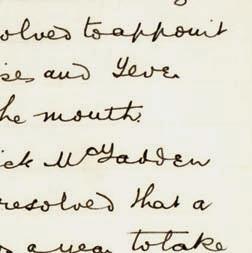 olved to appoint
ises and Yeve.
he mouth.
ick McFadden
resolved that a
a year to take